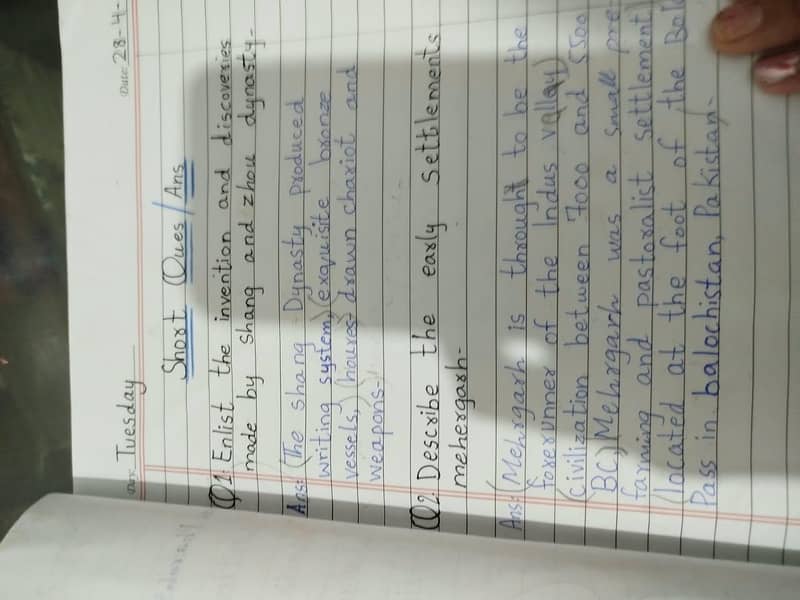 Day: Tuesday
Date: 28-4-
Short Ques/Ans
Q1 Enlist the invention and discoveries
made by shang and zhou dynasty-
Ans: (The shang Dynasty produced
writing system,)(exquisite bronze
vessels,)(houres- drawn chariot and
weapons-)
Q2 Describe the early settlements
mehergarh-
Ans: (Mehrgarh is throught to be the
forerunner of the Indus valley)
(civilization between 7000 and 5500
BC) Mehrgarh was a small pre-
farming and pastoralist settlement
(located at the foot of the
Pass in balochistan, Pakistan-